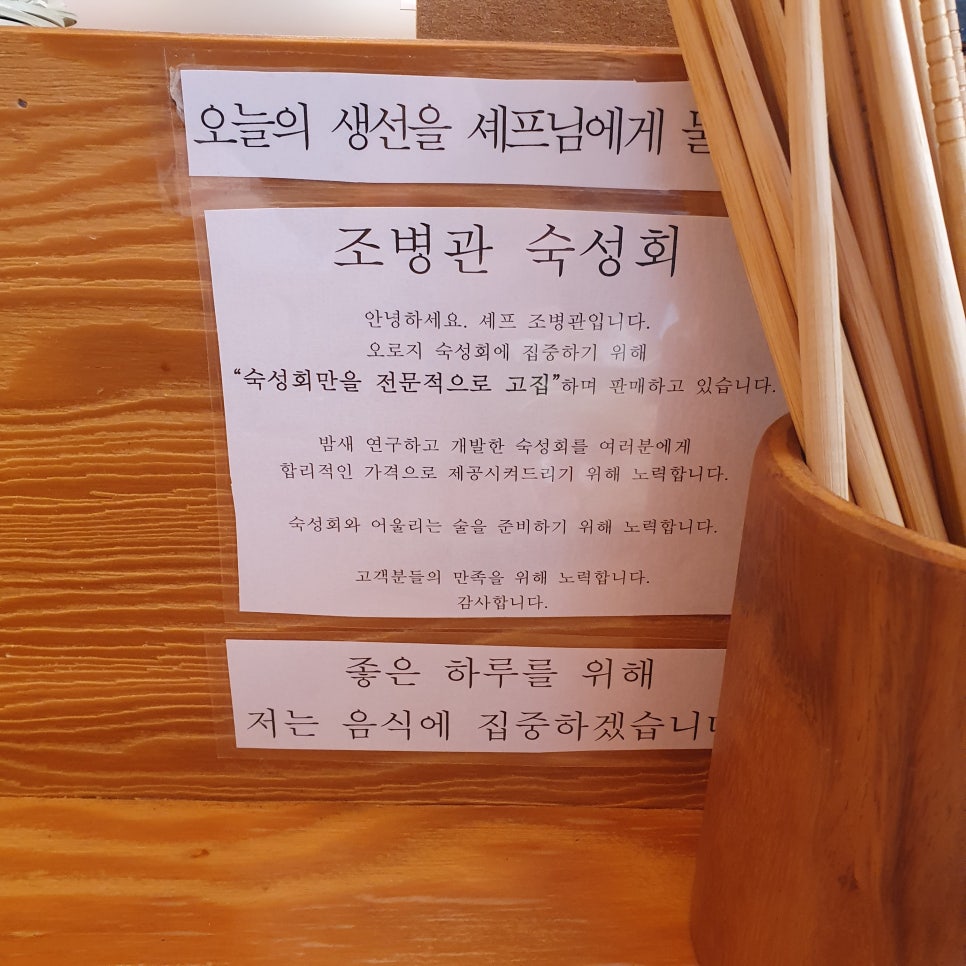 오늘의 생선을 셰프님에게
조병관 숙성회
안녕하세요. 셰프 조병관입니다.
오로지 숙성회에 집중하기 위해
“숙성회만을 전문적으로 고집”하며 판매하고 있습니다.
밤새 연구하고 개발한 숙성회를 여러분에게
합리적인 가격으로 제공시켜드리기 위해 노력합니다.
숙성회와 어울리는 술을 준비하기 위해 노력합니다.
고객분들의 만족을 위해 노력합니다.
감사합니다.
좋은 하루를 위해
저는 음식에 집중하겠습니